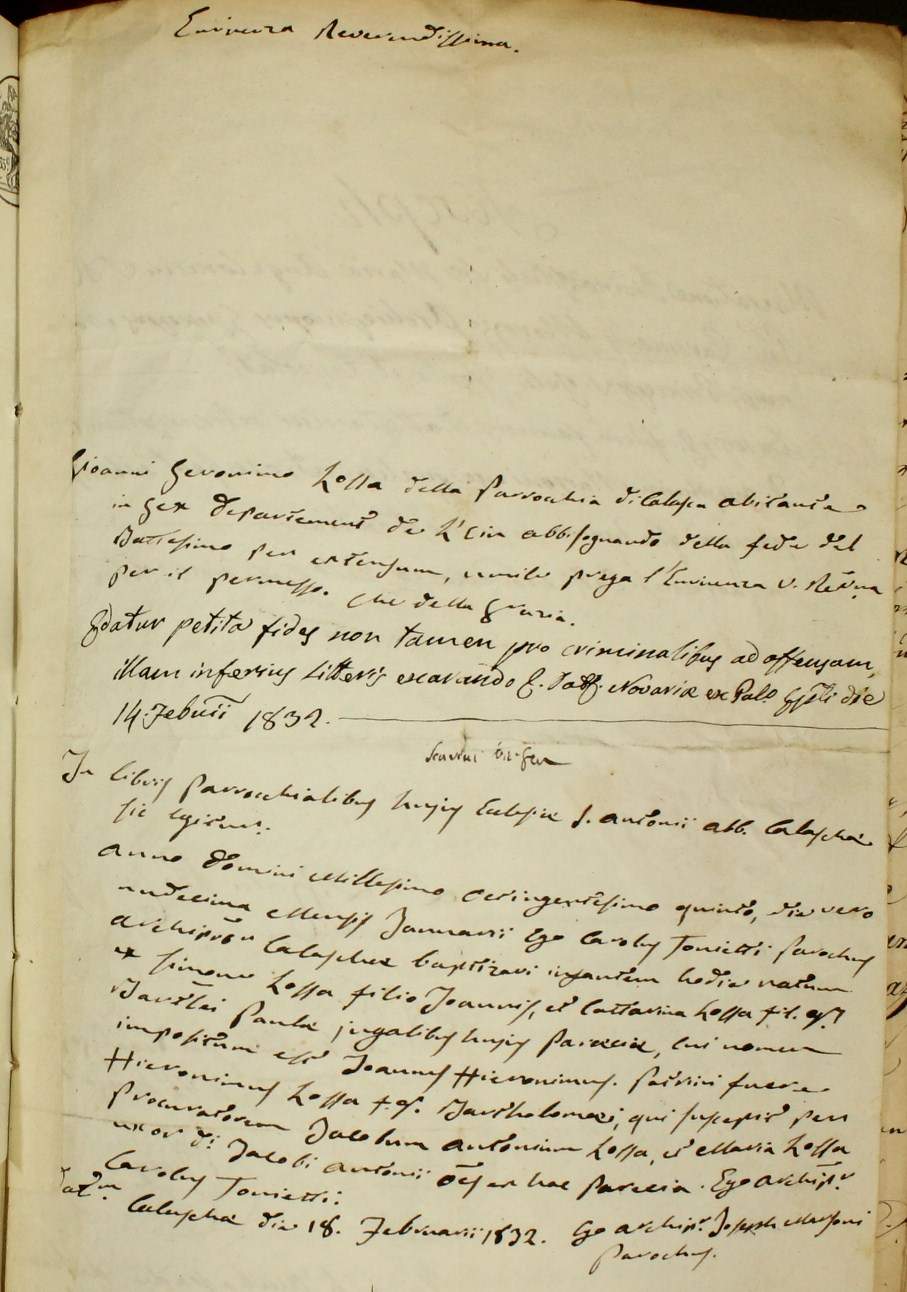 Eminenza Reverendissima.
Gioanni Geronimo Lossa della Parrochia di Calasca abitante
in Gex departement de L'Ein abbisognando della fede del
Battesimo per extensum, umile prega l'Eminenza V. Revma
per il permesso. Che della Grazia.
Edatur petita fides non tamen pro criminalibus ad offensam,
illam inferius litteris exarando E. Novariæ ex Pal. Epli die
14. Febrii 1832.
In libris Parrochialibus hujus Eclesiæ S. Antonii abb. Calaschæ
sic legitur.
Anno Domini Millesimo octingentesimo quinto, die vero
undecima Mensis Januarii Ego Carolus Tonietti Parochus
Archipr Calaschæ baptizavi infantem hodie natum
ex Simone Lossa filio Joannis, et Cattarina Lossa fil. q.
Bartlei Paulæ jugalibus hujus Parœciæ, cui nomen
impositum est Joannes Hieronimus. Patrini fuere
Hieronimus Lossa f. q. Bartholomei, qui suscepit per
Procuratorem Jacobum Antonium Lossa, et Maria Lossa
uxor di Jacobi Antonii oes ex hac Parœcia. Ego Archipr
Carolus Tonietti.
Dat. Calaschæ die 18. Februarii 1832. Ego Archipr. Joseph
Parochus.